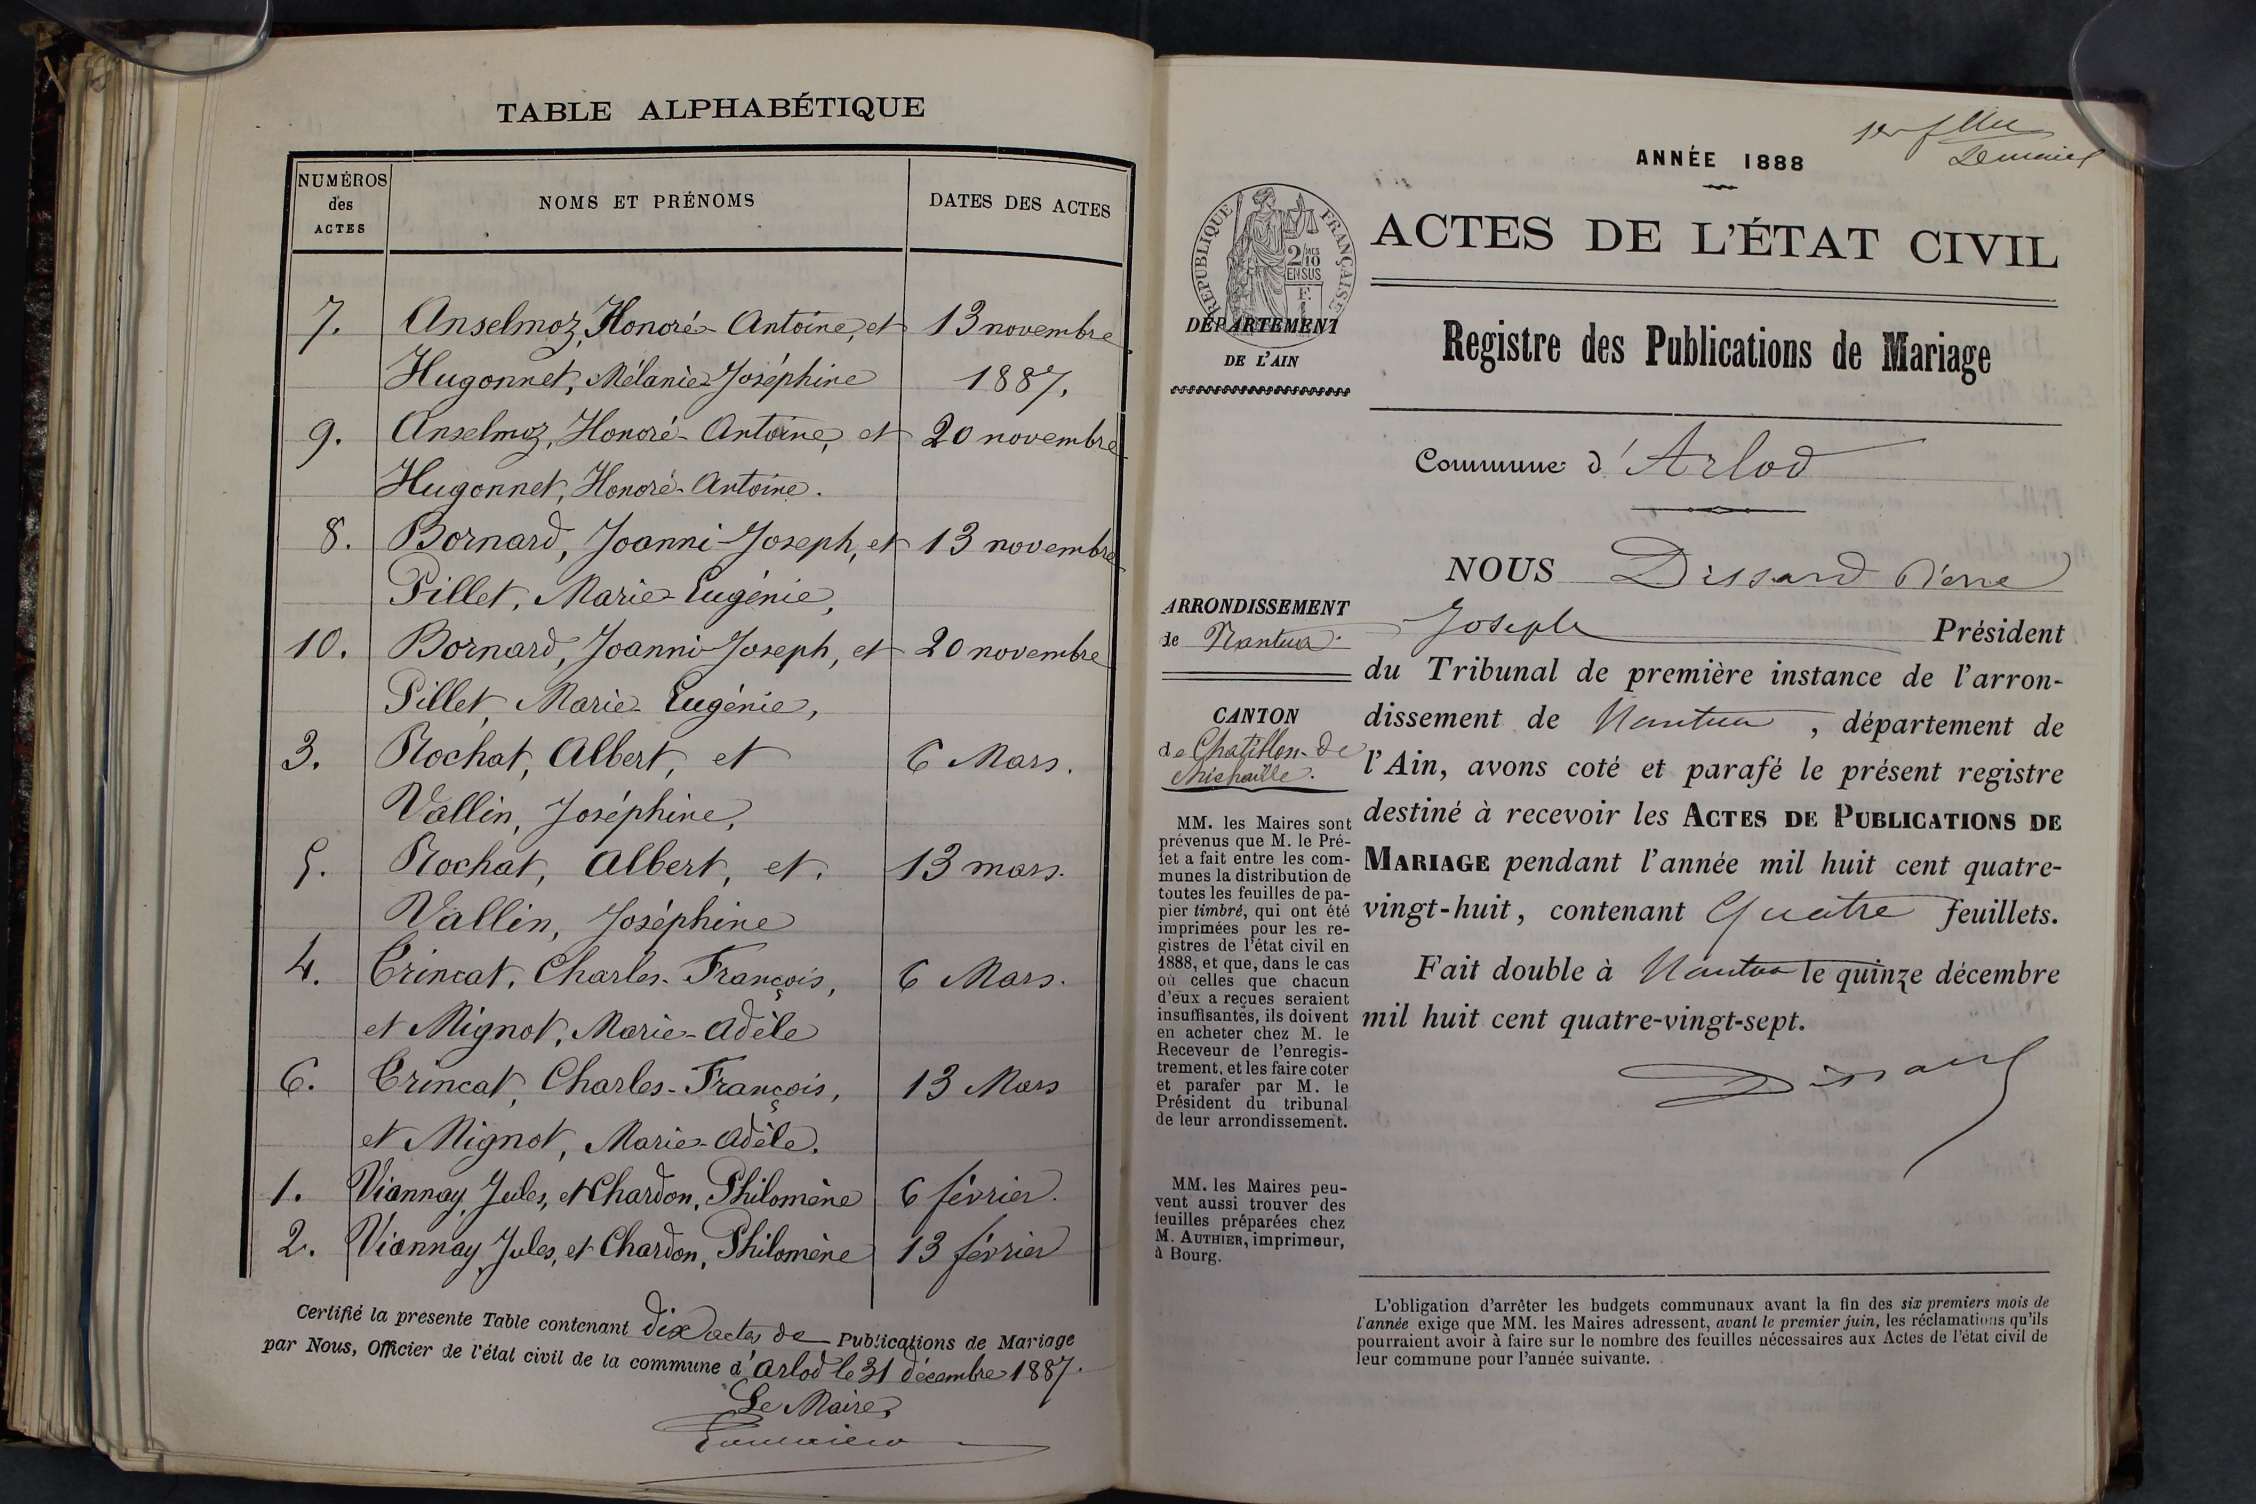 TABLE ALPHABÉTIQUE
NUMÉROS
des
ACTES
NOMS ET PRÉNOMS
DATES DES ACTES
7. Anselmoz, Honoré-Antoine, et 13 novembre
Hugonnet, Mélanie-Joséphine 1887.
9. Anselmoz, Honoré-Antoine, et 20 novembre
Hugonnet, Honoré-Antoine.
8. Bornard, Joanni-Joseph, et 13 novembre
Pillet, Marie-Eugénie,
10. Bornard, Joanni-Joseph, et 20 novembre
Pillet, Marie-Eugénie,
3. Rochat, Albert, et 6 Mars.
Vallin, Joséphine,
5. Rochat, Albert, et. 13 mars.
Vallin, Joséphine
4. Trincat, Charles-François, 6 Mars.
et Mignot, Marie-Adèle
6. Trincat, Charles-François, 13 Mars
et Mignot, Marie-Adèle.
1. Viannay, Jules, et Chardon, Philomène 6 février.
2. Viannay, Jules, et Chardon, Philomène 13 février
Certifié la présente Table contenant dix actes de Publications de Mariage
par Nous, Officier de l'état civil de la commune d'Arlod le 31 décembre 1887.
Le Maire,
1er f
ANNÉE 1888
RÉPUBLIQUE FRANÇAISE
2/10
EN SUS
ACTES DE L'ÉTAT CIVIL
Registre des Publications de Mariage
DÉPARTEMENT
DE L'AIN
Commune d'Arlod
ARRONDISSEMENT
de Nantua.
CANTON
de Chatillon-de
Michaille.
MM. les Maires sont
prévenus que M. le Pré-
fet a fait entre les com-
munes la distribution de
toutes les feuilles de pa-
pier timbré, qui ont été
imprimées pour les re-
gistres de l'état civil en
1888, et que, dans le cas
où celles que chacun
d'eux a reçues seraient
insuffisantes, ils doivent
en acheter chez M. le
Receveur de l'enregis-
trement, et les faire coter
et parafer par M. le
Président du tribunal
de leur arrondissement.
MM. les Maires peu-
vent aussi trouver des
feuilles préparées chez
M. AUTHIER, imprimeur,
à Bourg.
NOUS Dissard Pierre
Joseph Président
du Tribunal de première instance de l'arron-
dissement de Nantua, département de
l'Ain, avons coté et parafé le présent registre
destiné à recevoir les ACTES DE PUBLICATIONS DE
MARIAGE pendant l'année mil huit cent quatre-
vingt-huit, contenant Quatre feuillets.
Fait double à Nantua le quinze décembre
mil huit cent quatre-vingt-sept.
Dissard
L'obligation d'arrêter les budgets communaux avant la fin des six premiers mois de
l'année exige que MM. les Maires adressent, avant le premier juin, les réclamations qu'ils
pourraient avoir à faire sur le nombre des feuilles nécessaires aux Actes de l'état civil de
leur commune pour l'année suivante.